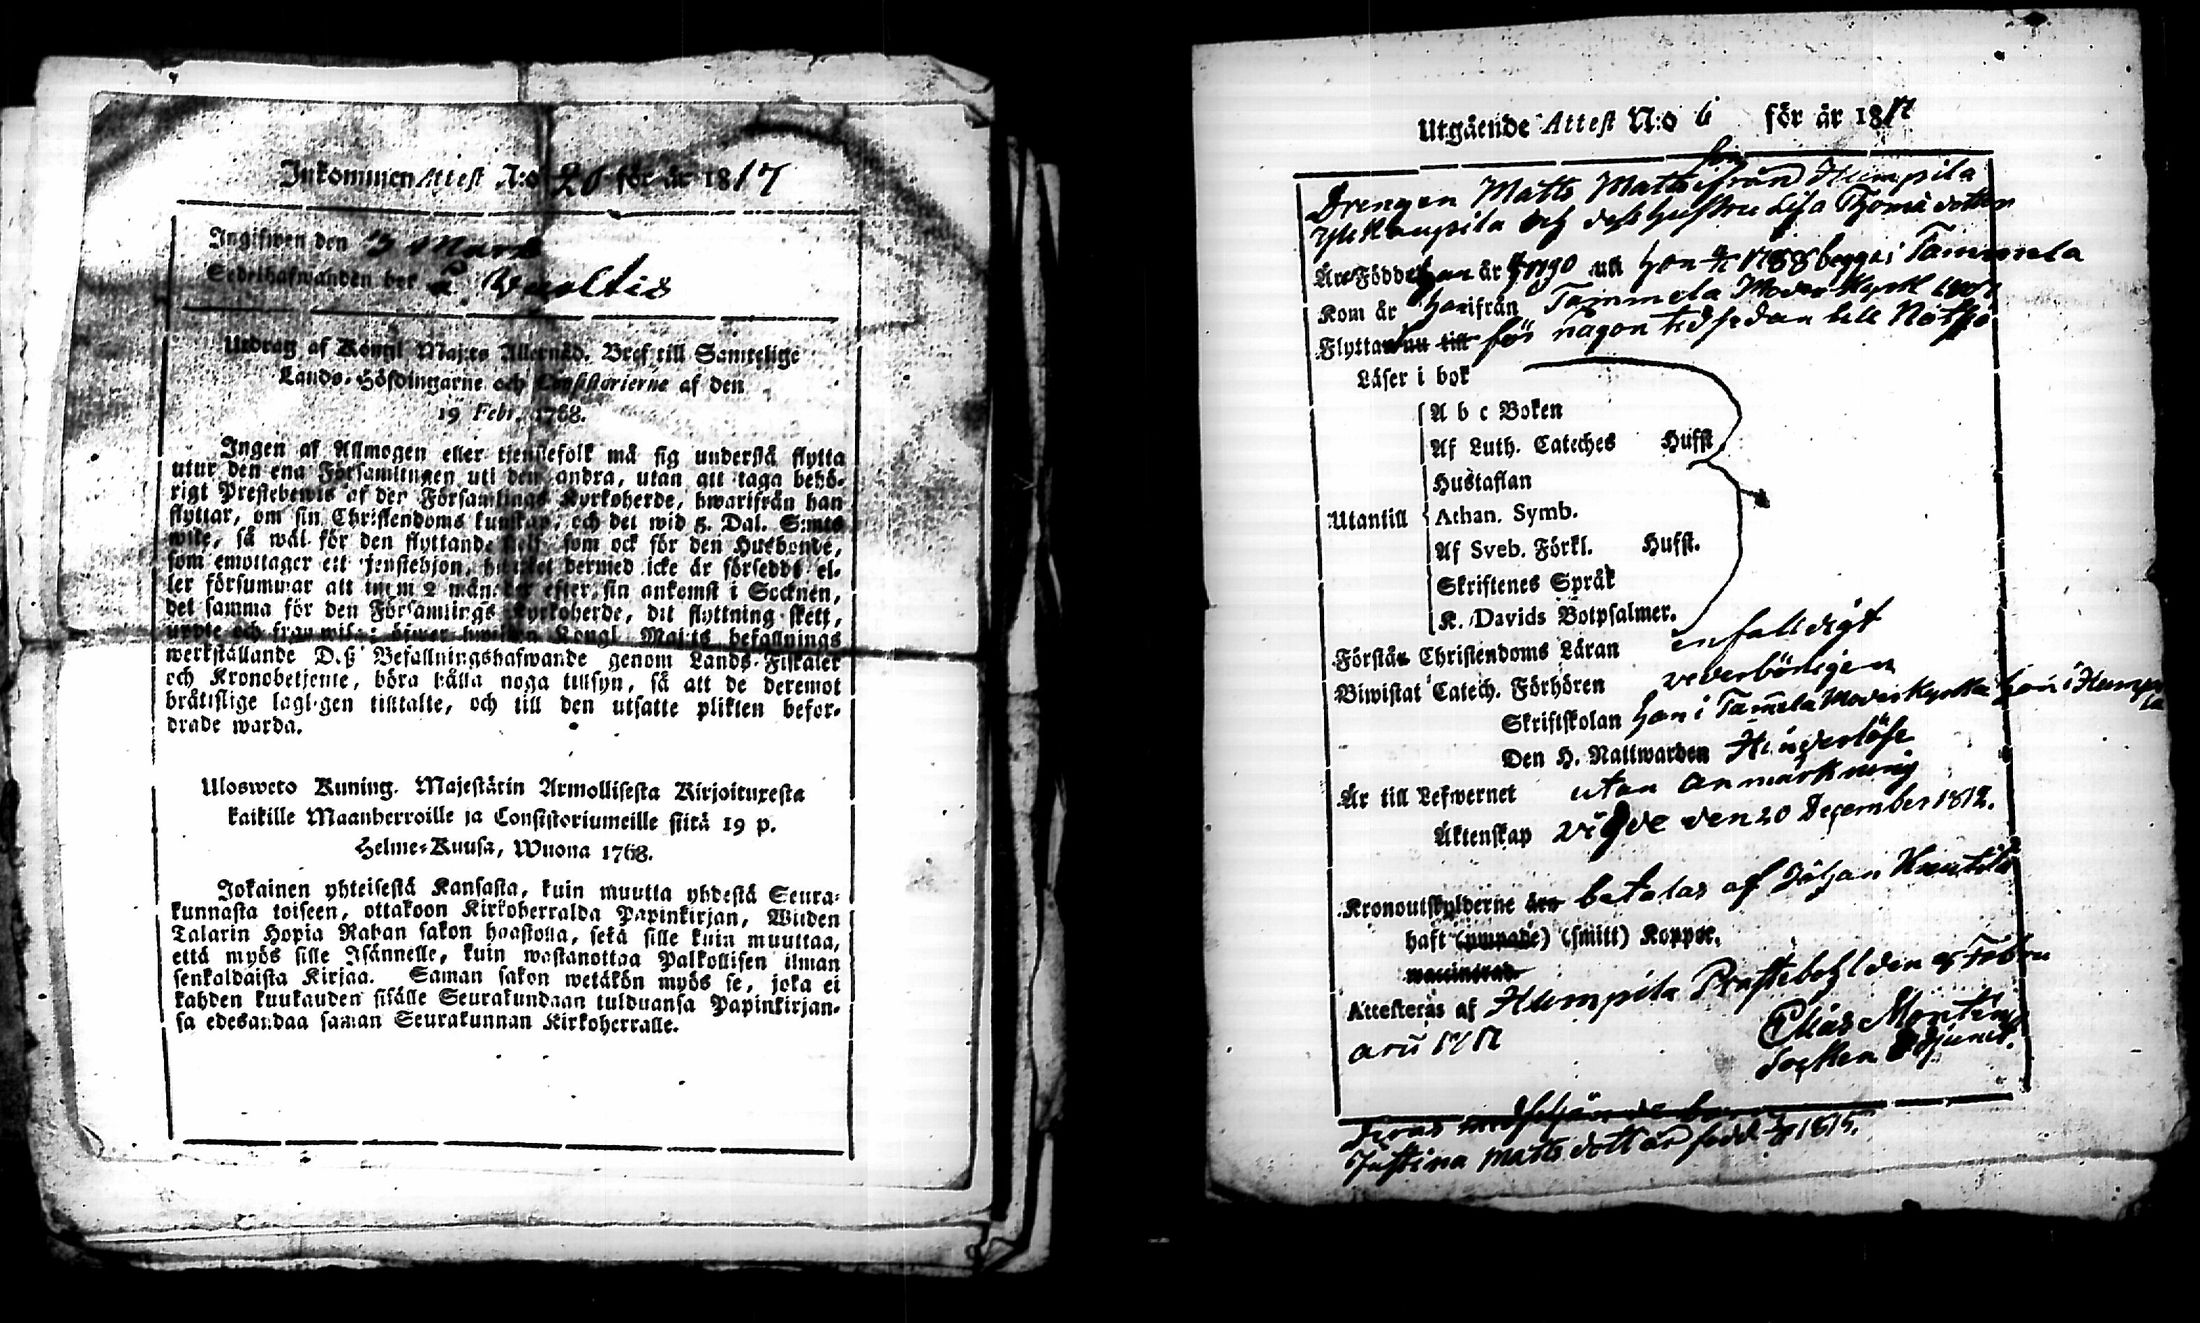 Inkommen Attest N:o 20 för år 1817
Ingifwen den 3 Mars
Sedelhafwanden bor å
Utdrag af Kongl Maj:ts Allernåd. Bref till Samtelige
Lands-Höfdingarne och Consistorierne af den
19 Febr. 1768.
Ingen af Allmogen eller tjenstefolk må sig understå flytta
utur den ena Församlingen uti den andra, utan att taga behö-
rigt Prestebewis af den Församlings Kyrkoherde, hwarifrån han
flyttar, om sin Christendoms kunskap, och det wid 5. Dal. S:mts
wite, så wäl för den flyttande sielf som ock för den Husbonde,
som emottager ett tjenstehjon, hwilket dermed icke är försedt; el-
ler försummar att inom 2 månader efter sin ankomst i Socknen,
det samma för den Församlings Kyrkoherde, dit flyttning skett,
uppte och framwisa; öfwer hwilken Kongl. Maj:ts befallnings
werkställande D.ß Befallningshafwande genom Lands-Fiskaler
och Kronobetjente, böra hålla noga tillsyn, så att de deremot
bråttslige lagligen tilltalte, och till den utsatte plikten befor-
drade warda.
Ulosweto Kuning. Majestätin Armollisesta Kirjoituxesta
kaikille Maanherroille ja Consistoriumeille siitä 19 p.
Helme-Kuusa, Wuona 1768.
Jokainen yhteisestä Kansasta, kuin muutta yhdestä Seura-
kunnasta toiseen, ottakoon Kirkoherralda Papinkirjan, Wiiden
Talarin Hopia Rahan sakon haastolla, sekä sille kuin muuttaa,
että myös sille Isännelle, kuin wastanottaa Palkollisen ilman
senkaldaista Kirjaa. Saman sakon wetäkön myös se, joka ei
kahden kuukauden sisälle Seurakundaan tulduansa Papinkirjan-
sa edesandaa saman Seurakunnan Kirkoherralle.
Utgående Attest N:o 6 för år 1817
son
Drengen Matts Matts ifrån Humpila
och deß hustru Lisa Thomædotter
Äre Födde han år 1790 uti hon 1788 begge i Tammela
Kom år hon ifrån Tammela Moder Kyrk
Flytta för någon tid sedan till
Läser i bok
A b c Boken
Af Luth. Cateches Husst
Hustaflan
Utantill Athan. Symb.
Af Sveb. Förkl. Husst.
Skriftenes Språk
K. Davids Botpsalmer.
Förstår Christendoms Läran enfalldigt
Biwistat Catech. Förhören vederbörligen
Skriftskolan hon i Tammela Moderkyrka han i Humpila
Den H. Nattwarden Hinderlöse
Är till Lefwernet utan anmärkning
Äktenskap vigde den 20 December 1812.
Kronoutskylderne äro betalas af Johan
haft (ympade) (smitt) Koppor,
Attesteras af Humpila Prästebohl den Febru
arii 1817
Elias
Socken Adjunct.
Justina Matts dotter född 1815.